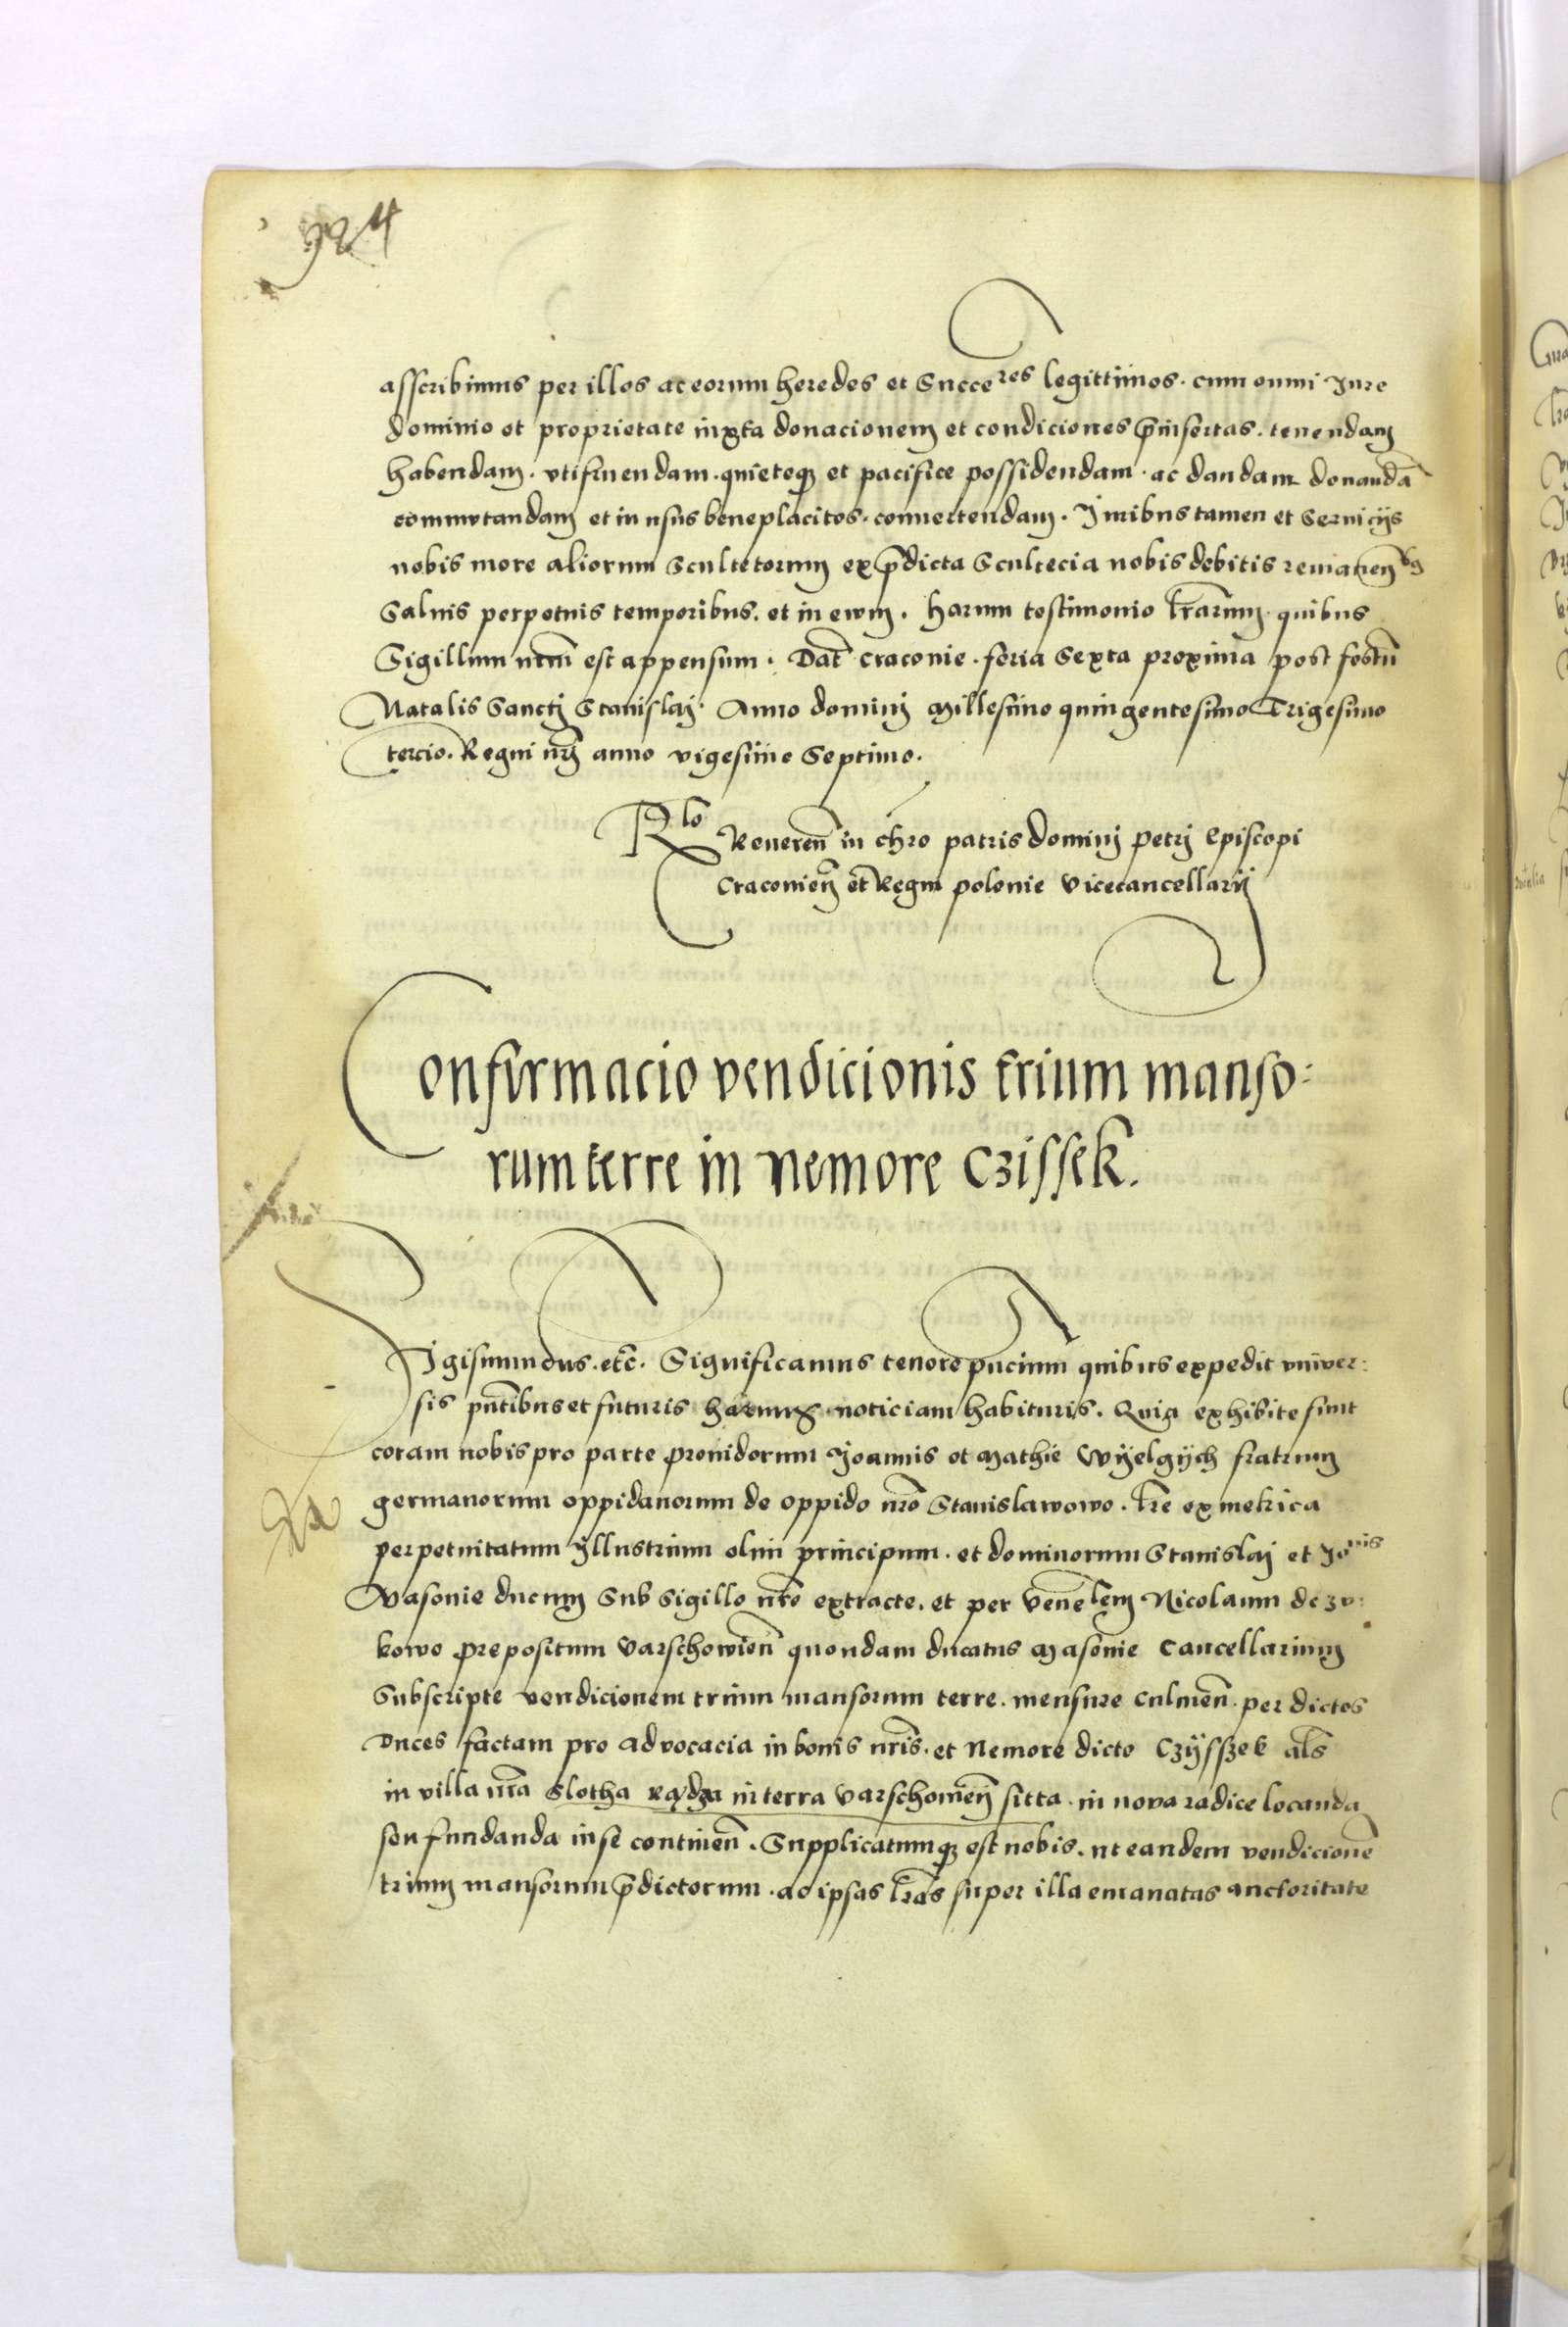 924
asscribimus per illos ac eorum heredes et Succeres legittimos. cum omni Jure
dominio et proprietate iuxta donacionem et condiciones p̄insertas. tenendam
habendam. vtifruendam. quieteqꝫ et pacifice possidendam. ac dandam donandā
commutandam et in usus beneplacitos. conuertendam. Juribus tamen et Seruicijs
nobis more aliorum Scultetorum ex p̄dicta Scultecia nobis debitis remanen̄bꝫ
Saluis perpetuis temporibus. et in ewm. harum testimonio l̄rarum. quibus
Sigillum nr̄m est appensum. Dat̄ Craconie. feria Sexta proxima post festū
Natalis Sanctj Stanislaj. Anno dominj Millesimo quingentesimo Trigesimo
tercio. Regni nr̄j anno vigesimo Septimo.
Rlo Reueren̄ in chr̄o patris dominj Petrj Episcopi
Craconien̄ et Regni polonie Vicecancellarij
Confirmacio vendicionis trium manso:
rum terre in nemore Czissek.
Sigismundus. etc̄. Significamus tenore pn̄cium quibus expedit vniuer:
sis pn̄tibus et futuris harum noticiam habituris. Quia exhibite sunt
coram nobis pro parte prouidorum Joannis et Mathie Wÿelgÿch fratrum
germanorum oppidanorum de oppido nr̄o Stanislawowo. l̄re ex metrica
perpetuitatum Jllustrium olim principum. et dominorum Stanislaj et Jonis
Masonie ducum Sub Sigillo nr̄o extracte. et per Venelem Nicolaum de Zu:
kowo prepositum Varschowien̄ quondam ducatus Masouie Cancellarium
Subscripte vendicionem trium mansorum terre. mensure Culmen̄. per dictos
Duces factam pro aduocacia in bonis nr̄is. et Nemore dicto Czÿsszek als̄
in villa nr̄a Slotha rądza in terra Varschouien̄ sitta. in nova radice locanda
seu fundanda in se continen̄. Supplicatumqꝫ est nobis. ut eandem vendicionē
trium mansorum p̄dictorum. ac ipsas l̄ras super illa emanatas auctoritate